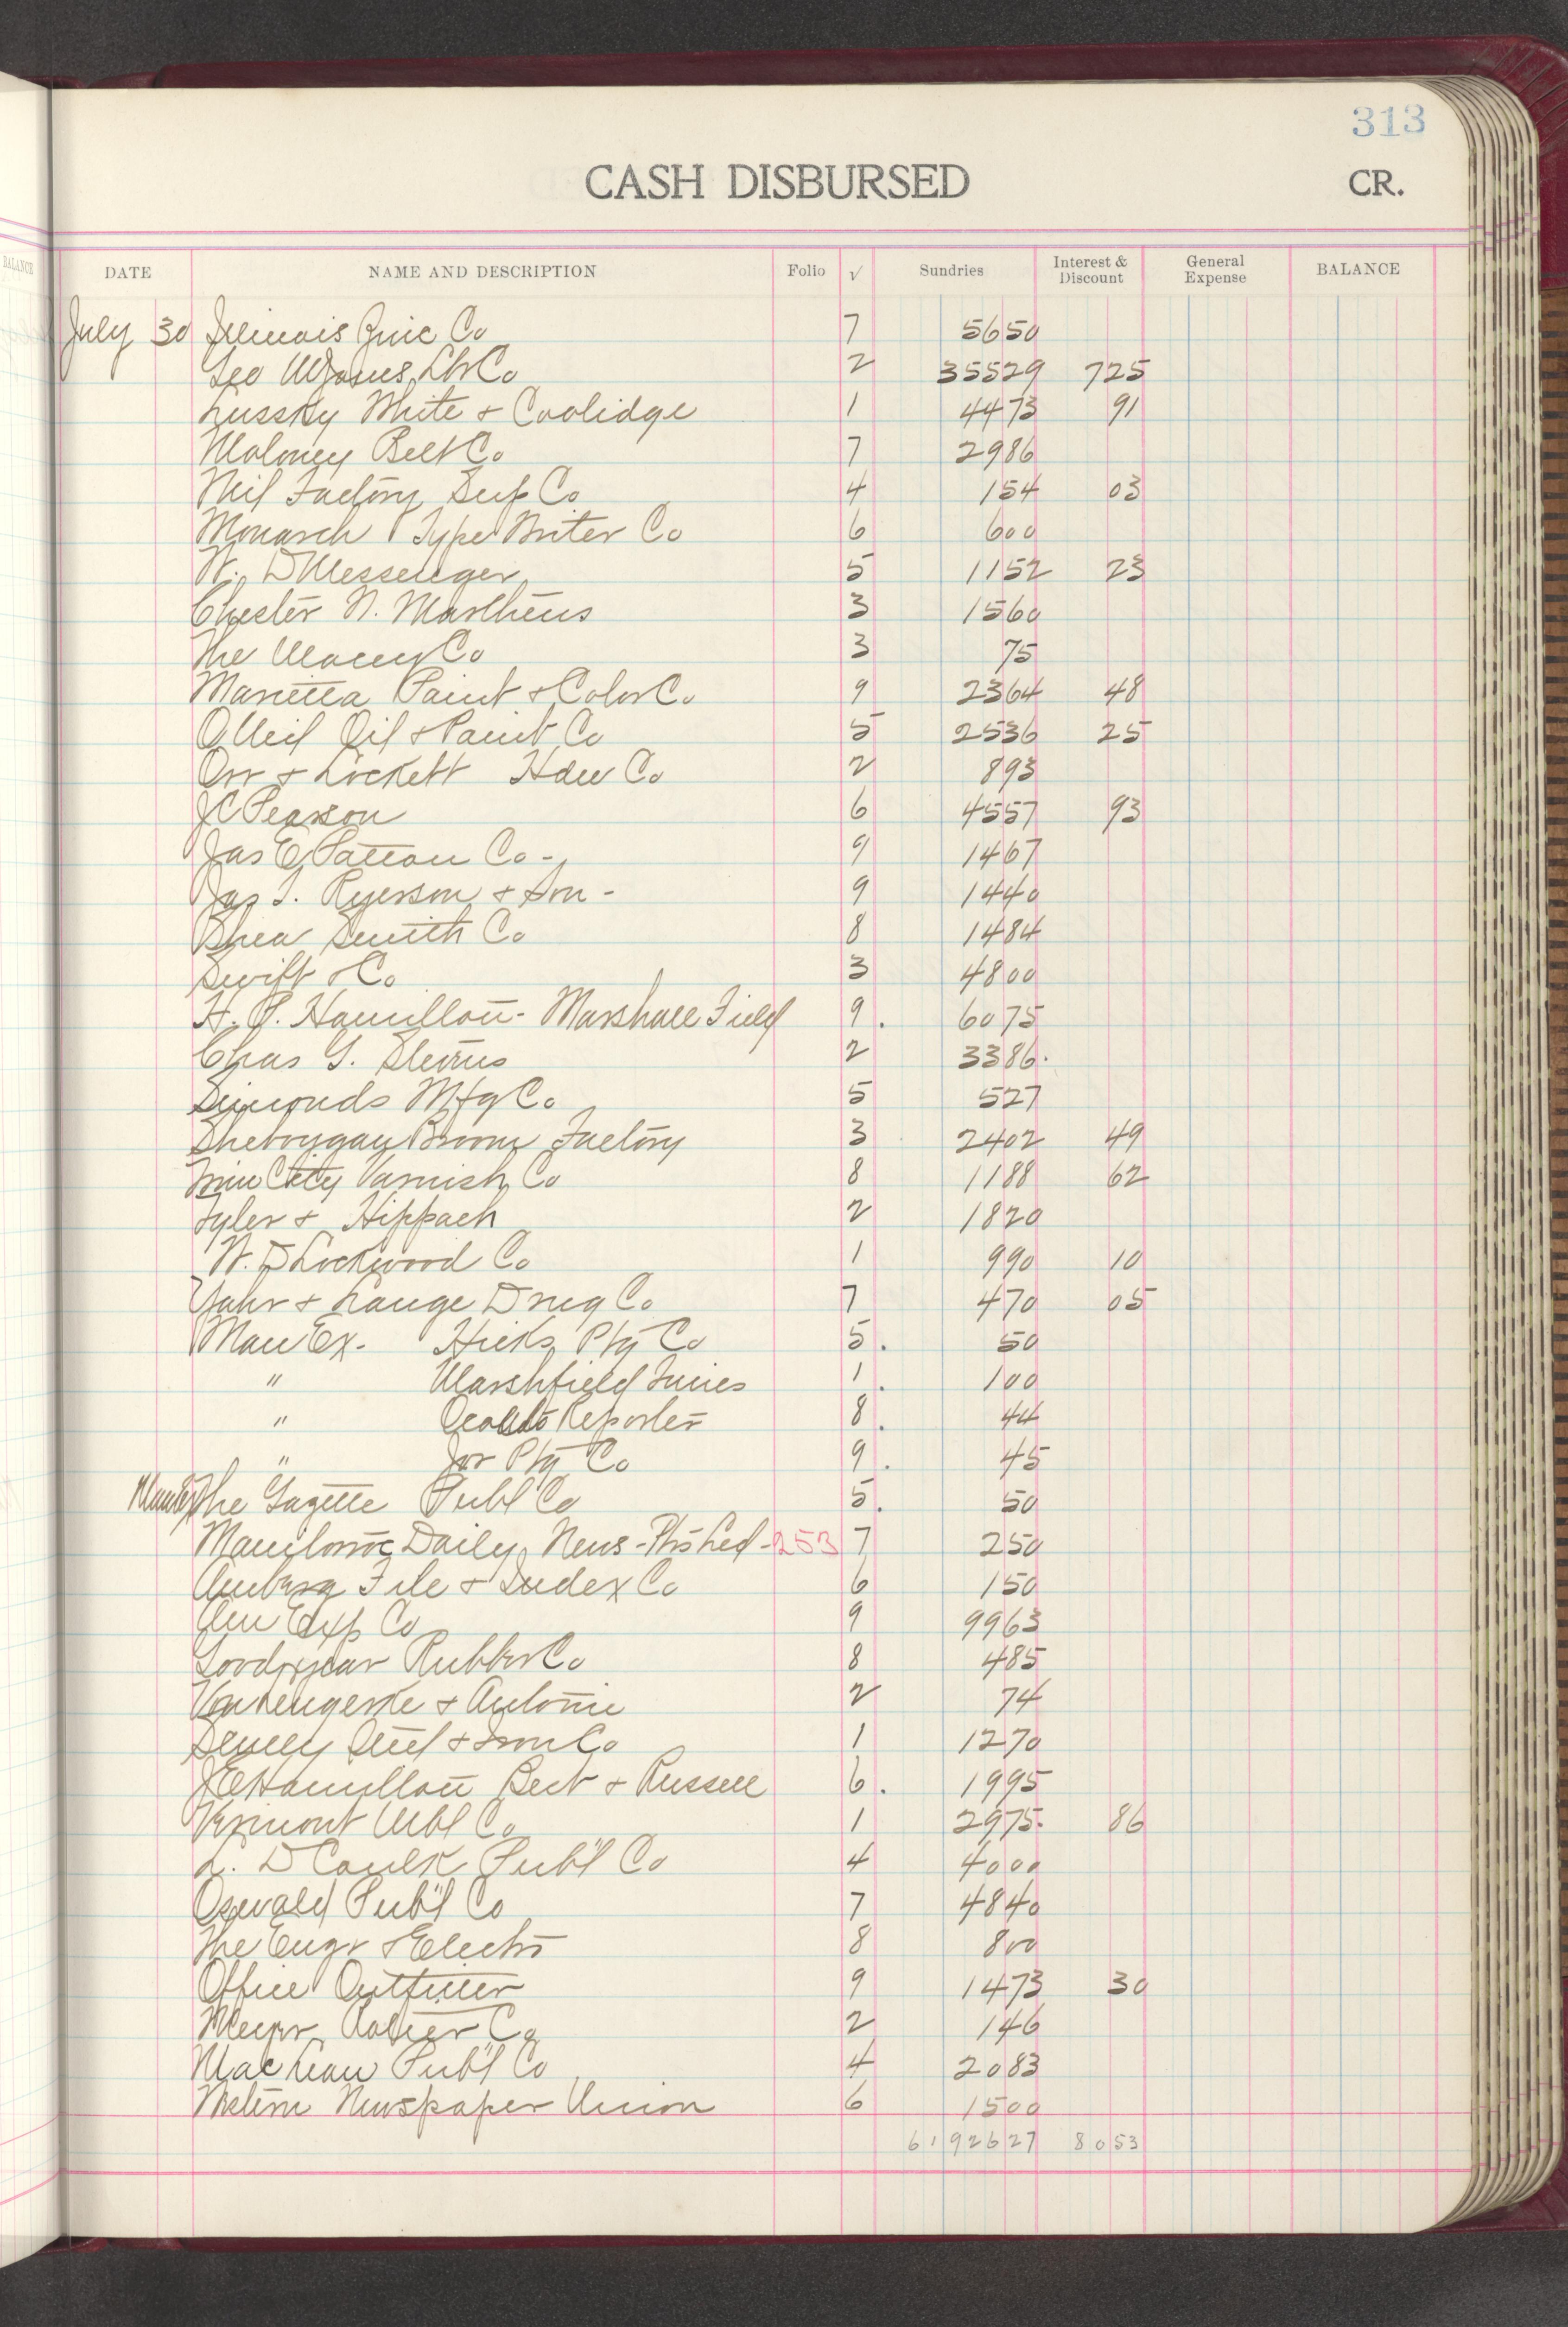 313
CASH DISBURSED CR.
BALANCE
DATE NAME AND DESCRIPTION Folio √ Sundries Interest & Discount General Expense BALANCE
July 30 Illinois Zinc Co 7 5650
Geo Co 2 35529 725
Lussky White & Coolidge 1 4473 91
Maloney Belt Co 7 2986
Mil Factory Sup Co 4 154 03
Monarch Type Writer Co 6 600
W. D Messenger 5 1152 23
Chester N. Marthens 3 1560
The Macey Co 3 75
Marietta Paint & Color Co 9 2364 48
ONeil Oil & Paint Co 5 2536 25
Orr & Lockett Hdw Co 2 893
JC Pearson 6 4557 93
Jas E Patton Co - 9 1467
Jos T. Ryerson & Son - 9 1440
Rhea Smith Co 8 1484
Swift & Co 3 4800
H. P. Hamilton - Marshall Field 9 . 6075
Chas G. Stevens 2 3386.
Simonds Mfg Co 5 527
Sheboygan Broom Factory 3 2402 49
Twin City Varnish Co 8 1188 62
Tyler & Hippach 2 1820
W. D Lockwood Co 1 990 10
Yahr & Lange Drug Co 7 470 05
Man Ex - Hicks Ptg Co 5 . 50
" Marshfield Times 1 . 100
" Oconto Reporter 8 . 44
" Jor Ptg Co 9 . 45
Man Ex The Gazette Publ Co 5 . 50
Manitowoc Daily News - 253 7 250
Amberg File & Index Co 6 150
Am Exp Co 9 9963
Goodyear Rubber Co 8 485
Von Lengerke & Antoine 2 74
Scully Steel & Iron Co 1 1270
JE Hamilton Bert & Russell 6 . 1995
Vermont Mbl Co 1 2975. 86
L. D Caulk Publ Co 4 4000
Oswald Publ Co 7 4840
The Engr & Electro 8 800
Office Outfitter 9 1473 30
Meyer Co 2 146
MacLean Publ Co 4 2083
Western Newspaper Union 6 1500
6192627 8053